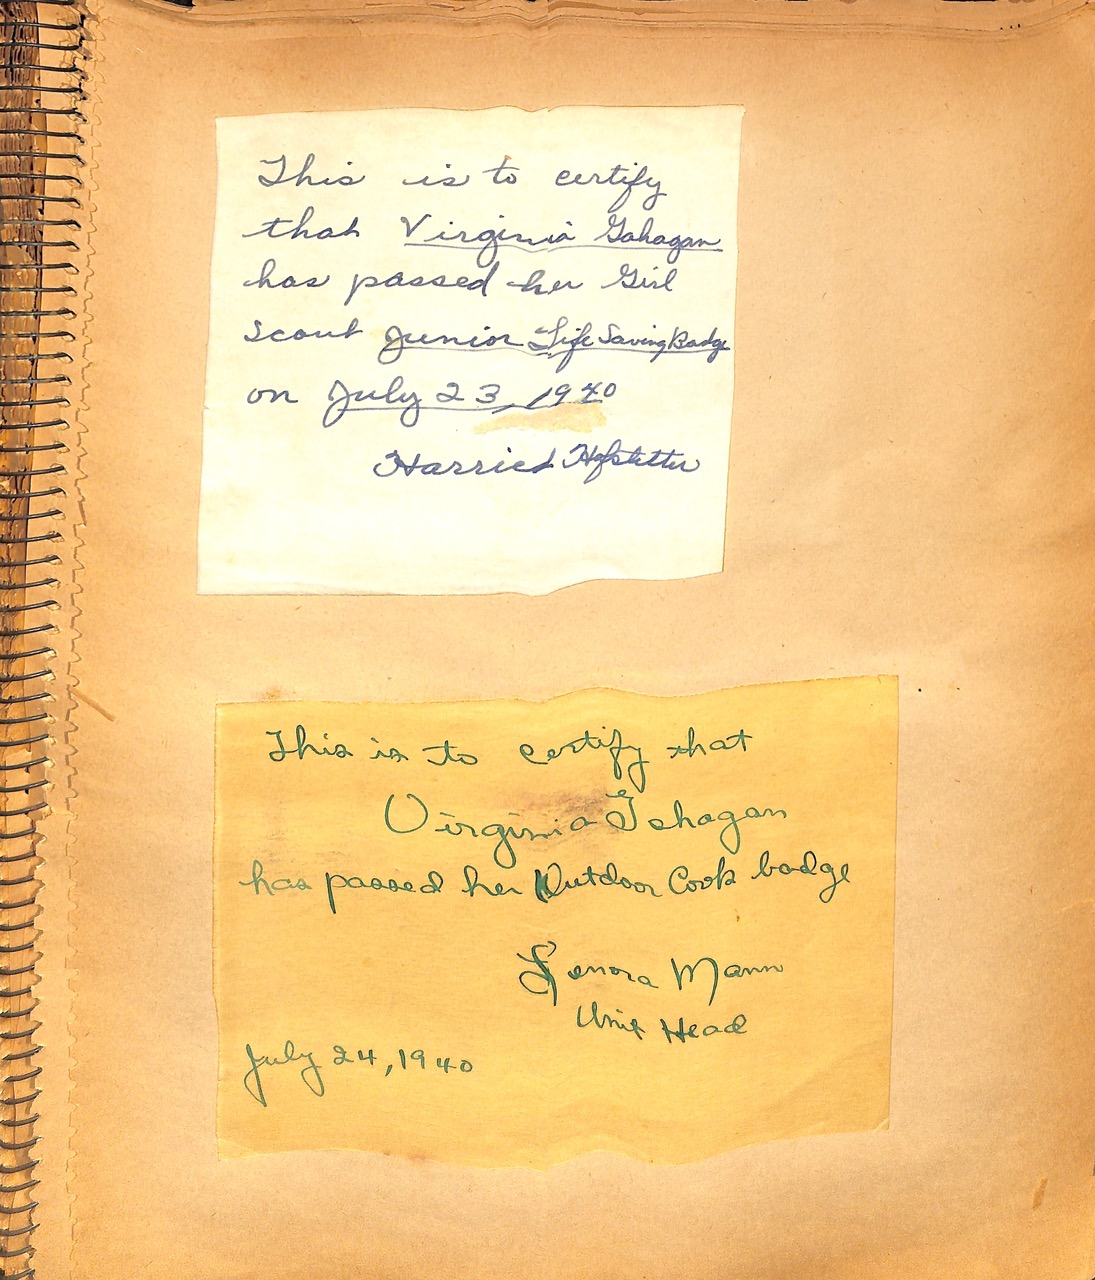 This is to certify
that Virginia Gahagan
has passed her Girl
Scout Junior Life Saving Badge
on July 23, 1940
Harriet Hofstetter
This is to certify that
Virginia Gahagan
has passed her Outdoor Cook badge
Lenora Mann
Unit Head
July 24, 1940